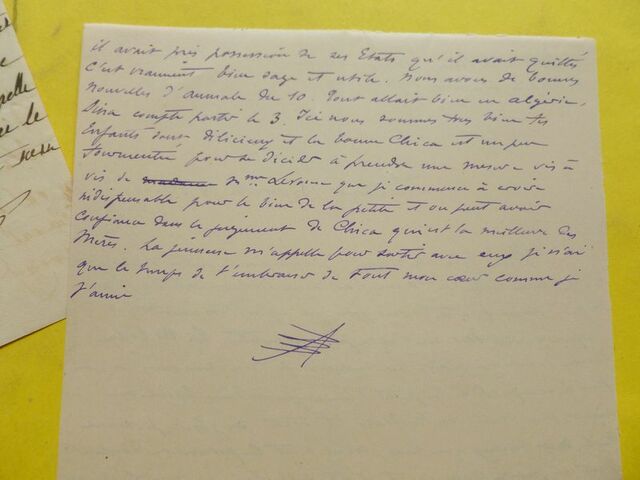 il avait pris possession de ses Etats qu'il avait quittés
C'est vraiment bien sage et utile. Nous avons de bonnes
nouvelles d'aumale du 10. Tout allait bien en algérie,
compte partir le 3. Ici nous sommes tous bien tes
Enfants sont délicieux et la bonne Chica est un peu
tourmentée pour se décider à prendre une mesure vis à
vis de madame de Mme que je commence à croire
indispensable pour le bien de la petite et on peut avoir
confiance dans le jugement de Chica qui est la meilleure des
Mères. La m'appelle pour sortir avec eux je n'ai
que le temps de t'embrasser de tout mon cœur comme je
t'aime
elle
le